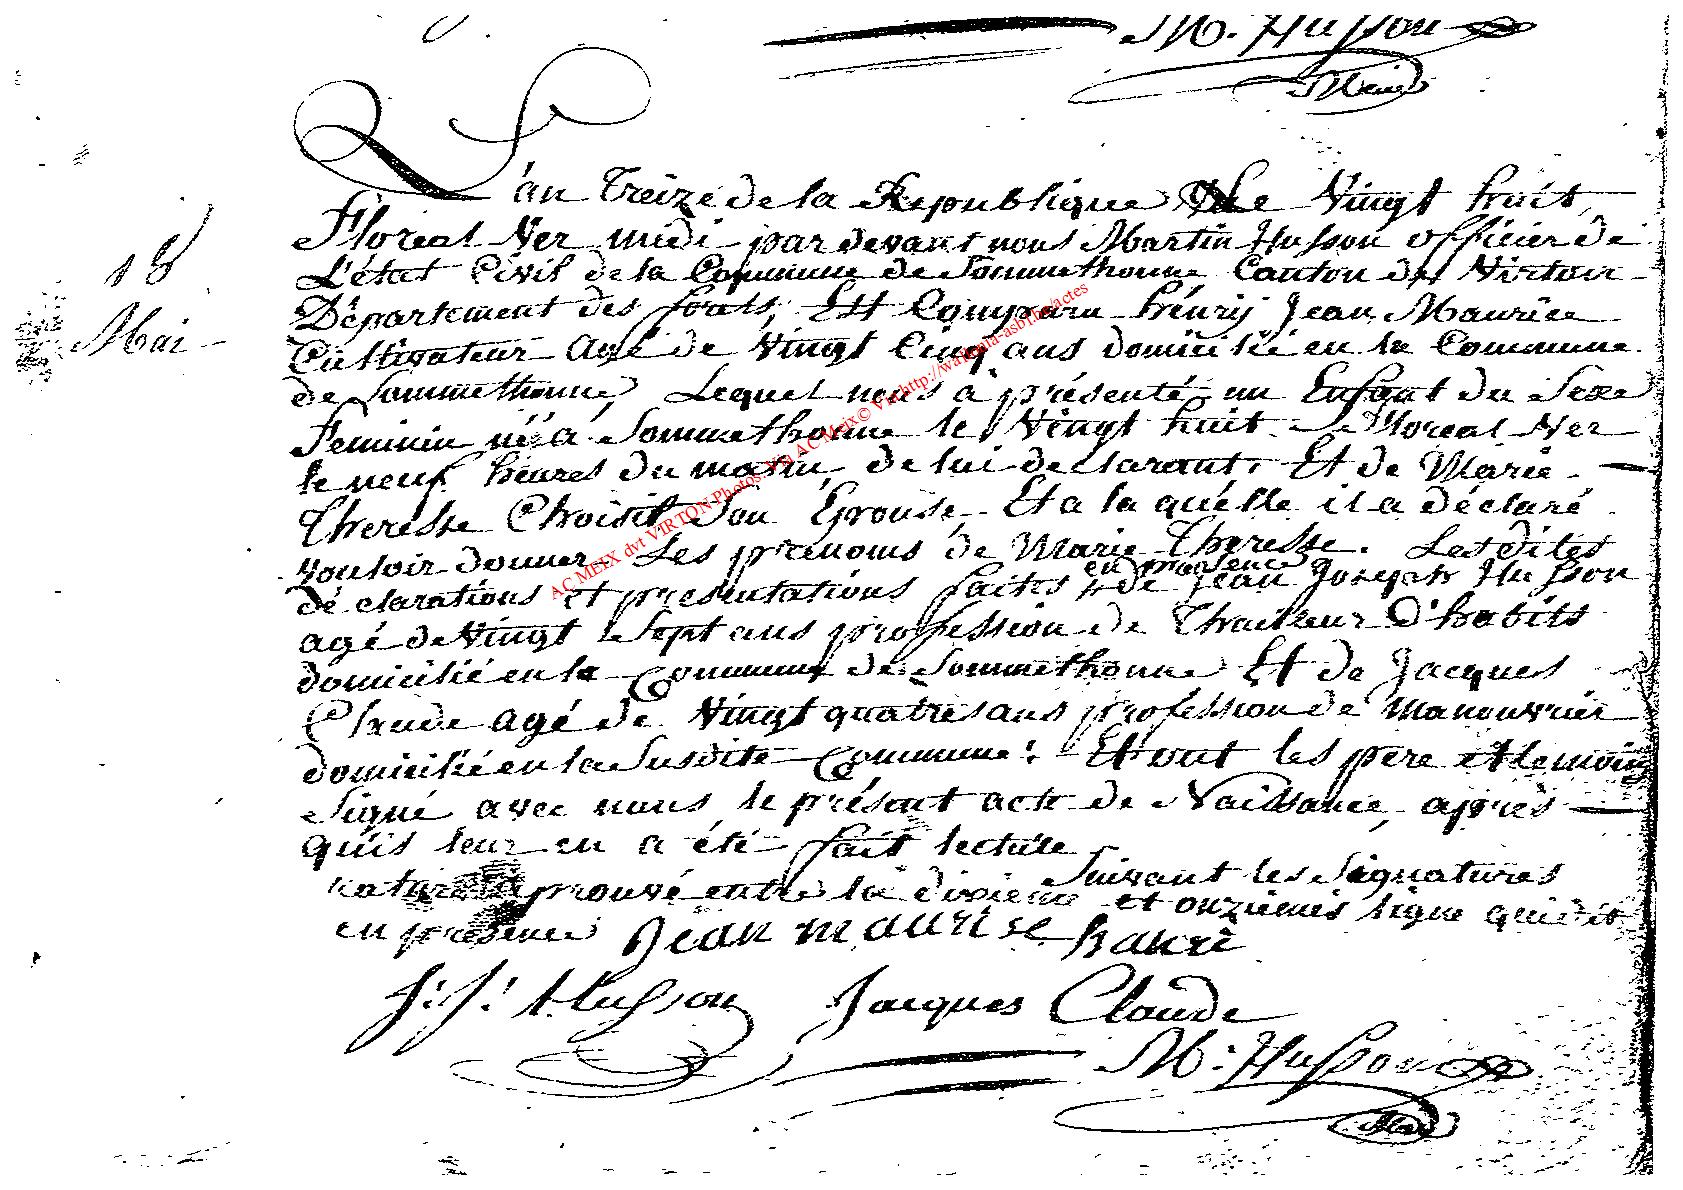 M. Husson
Maire
L'an Treize de la Republique le Vingt huit
Floreal Ver midi par devant nous Martin Husson officier de
18
L'état Civil de la Commune de Sommethonne Canton de Virton
Département des forets, Est Comparu henrij Jean Maurice
Mai
Cultivateur Agé de Vingt Cinq ans domicilié en la Commune
de Sommethonne, Lequel nous à présenté un Enfant du Sexe
Feminin né à Sommethonne le Vingt huit Floreal Ver
le neuf heures du matin, de lui declarant, Et de Marie
Theresse Choisit Son Epouse, Et a la quélle il a déclaré
vouloir donner Les prenoms de Marie Theresse. Les dites
en presence
déclarations et presentations faites de Jean Joseph Husson
agé de Vingt Sept ans proffession de Thailleur D'habits
domicilié en la Commune de Sommethonne Et de Jacques
Claude agé de Vingt quatres ans profession de manouvrier
domicilié en la Susdite Commune: Et ont les père et temoin
Signé avec nous le présent acte de Naissance, après
quis leur en a été fait lectúre
Suivant les Signatures
aprouvé entre la dixieme et onziemes ligne qui dit
en presence Jean maurise hanri
J: J: Husson Jacques Claude
M: Husson
Maire
AC MEIX dvt VIRTON Photos Via AC Meix © Via http://wallonia-asbl.be/actes